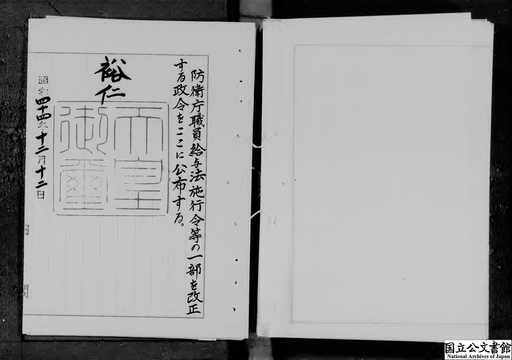 防衛庁職員給与法施行令等の一部を改正
する政令をここに公布する。
裕仁
天皇
御璽
昭和四十四年十二月十二日
国立公文書館
National Archives of Japan